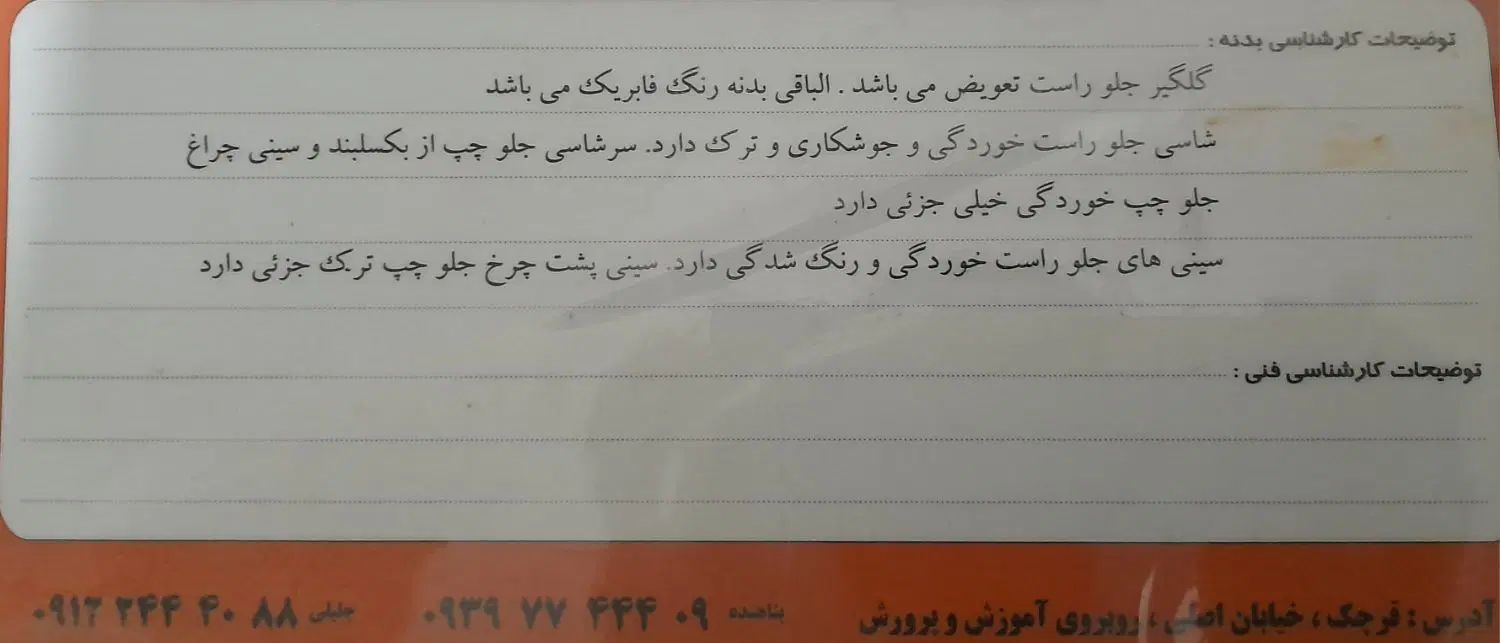 توضیحات کارشناسی بدنه :
گلگیر جلو راست تعویض می باشد . الباقی بدنه رنگ فابریک می باشد
شاسی جلو راست خوردگی و جوشکاری و ترک دارد. سرشاسی جلو چپ از بکسلبند و سینی چراغ
جلو چپ خوردگی خیلی جزئی دارد
سینی های جلو راست خوردگی و رنگ شدگی دارد. سینی پشت چرخ جلو چپ ترک جزئی دارد
توضیحات کارشناسی فنی :
آدرس : قرچک ، خیابان اصلی ، روبروی آموزش و پرورش پناهنده ۰۹۳۹ ۷۷ ۴۴۴ ۰۹ جلیلی ۰۹۱۲ ۲۴۴ ۴۰ ۸۸